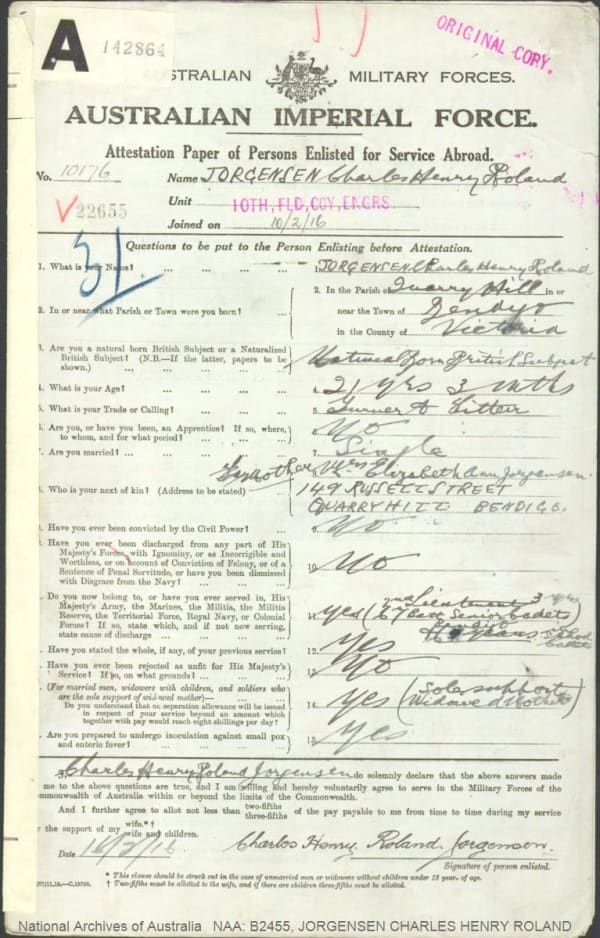 A 142864
ORIGINAL COPY.
AUSTRALIAN MILITARY FORCES.
AUSTRALIAN IMPERIAL FORCE.
Attestation Paper of Persons Enlisted for Service Abroad.
No. 10176 Name JORGENSEN Charles Henry Roland
22655
Unit 10TH, FLD, COY, ENGRS.
Joined on 10/2/16
31.
Questions to be put to the Person Enlisting before Attestation.
1. What is your Name? ... ... ... ... 1. JORGENSEN. Charles Henry Roland
2. In or near what Parish or Town were you born? ... 2. In the Parish of Quarry Hill in or
near the Town of Bendigo
in the County of Victoria
3. Are you a natural born British Subject or a Naturalized
British Subject? (N.B.—If the latter, papers to be
shown.) ... ... ... ... 3. Natural Born British Subject
4. What is your Age? ... ... ... ... 4. 21 yrs 3 mths
5. What is your Trade or Calling? ... ... ... 5. Turner & Fitter
6. Are you, or have you been, an Apprentice? If so, where,
to whom, and for what period? ... ... ... 6. No
7. Are you married? ... ... ... ... 7. Single
mother Mrs Elizabeth Ann Jorgensen.
8. Who is your next of kin? (Address to be stated) ... 149 RUSSELL STREET
QUARRY HILL BENDIGO.
9. Have you ever been convicted by the Civil Power? ... 9. No
. Have you ever been discharged from any part of His
Majesty's Forces, with Ignominy, or as Incorrigible and
Worthless, or on account of Conviction of Felony, or of a
Sentence of Penal Servitude, or have you been dismissed
with Disgrace from the Navy? ... ... 10. No
. Do you now belong to, or have you ever served in, His
Majesty's Army, the Marines, the Militia, the Militia
Reserve, the Territorial Force, Royal Navy, or Colonial
Forces? If so, state which, and if not now serving,
state cause of discharge ... ... 11. yes (2nd Lieutenant 3 yrs
67 Batt Senior Cadets
Bendigo
years School
Cadets
. Have you stated the whole, if any, of your previous service? 12. Yes
. Have you ever been rejected as unfit for His Majesty's
Service? If so, on what grounds? ... ... 13. No
. (For married men, widowers with children, and soldiers who
are the sole support of widowed mother)—
Do you understand that no separation allowance will be issued
in respect of your service beyond an amount which
together with pay would reach eight shillings per day? 14. yes (Sole support
Widowed Mother)
. Are you prepared to undergo inoculation against small pox
and enteric fever? ... ... ... ... 15. Yes
Charles Henry Roland Jorgensen do solemnly declare that the above answers made
me to the above questions are true, and I am willing and hereby voluntarily agree to serve in the Military Forces of the
mmonwealth of Australia within or beyond the limits of the Commonwealth.
And I further agree to allot not less than two-fifths three-fifths of the pay payable to me from time to time during my service
r the support of my wife.*† wife and children.
Date 10/2/16 Charles Henry Roland Jorgensen.
Signature of person enlisted.
* This clause should be struck out in the case of unmarried men or widowers without children under 18 years of age.
† Two-fifths must be allotted to the wife, and if there are children three-fifths must be allotted.
National Archives of Australia NAA: B2455, JORGENSEN CHARLES HENRY ROLAND